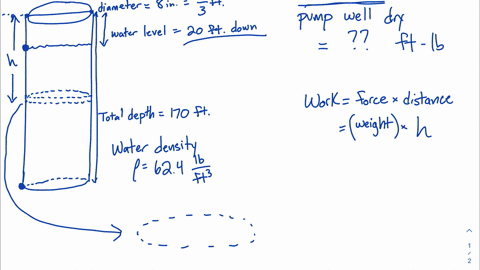 diameter = 8 in. = /3 ft.
water level = 20 ft. down
h
Total depth = 170 ft.
Water density
ρ = 62.4 lb/ft³
pump well dry
= ?? ft-lb
Work = force × distance
= (weight) × h
1
/
2